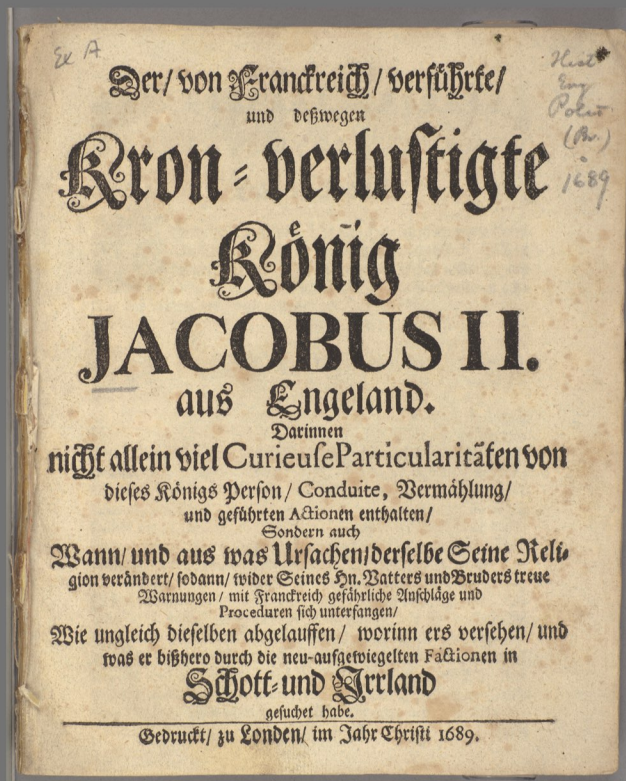 Ex A
Hist
Eng
(Br.)
1689
Der/ von Franckreich/ verführte/
und deßwegen
Kron-verlustigte
König
JACOBUS II.
aus Engeland.
Darinnen
nicht allein viel Curieuse Particularitäten von
dieses Königs Person/ Conduite, Vermählung/
und geführten Actionen enthalten/
Sondern auch
Wann/ und aus was Ursachen/ derselbe Seine Reli-
gion verändert/ sodann/ wider Seines Hn. Vatters und Bruders treue
Warnungen/ mit Franckreich gefährliche Anschläge und
Proceduren sich unterfangen/
Wie ungleich dieselben abgelauffen/ worinn ers versehen/ und
was er bißhero durch die neu-aufgewiegelten Factionen in
Schott- und Irrland
gesuchet habe.
Gedruckt/ zu Londen/ im Jahr Christi 1689.